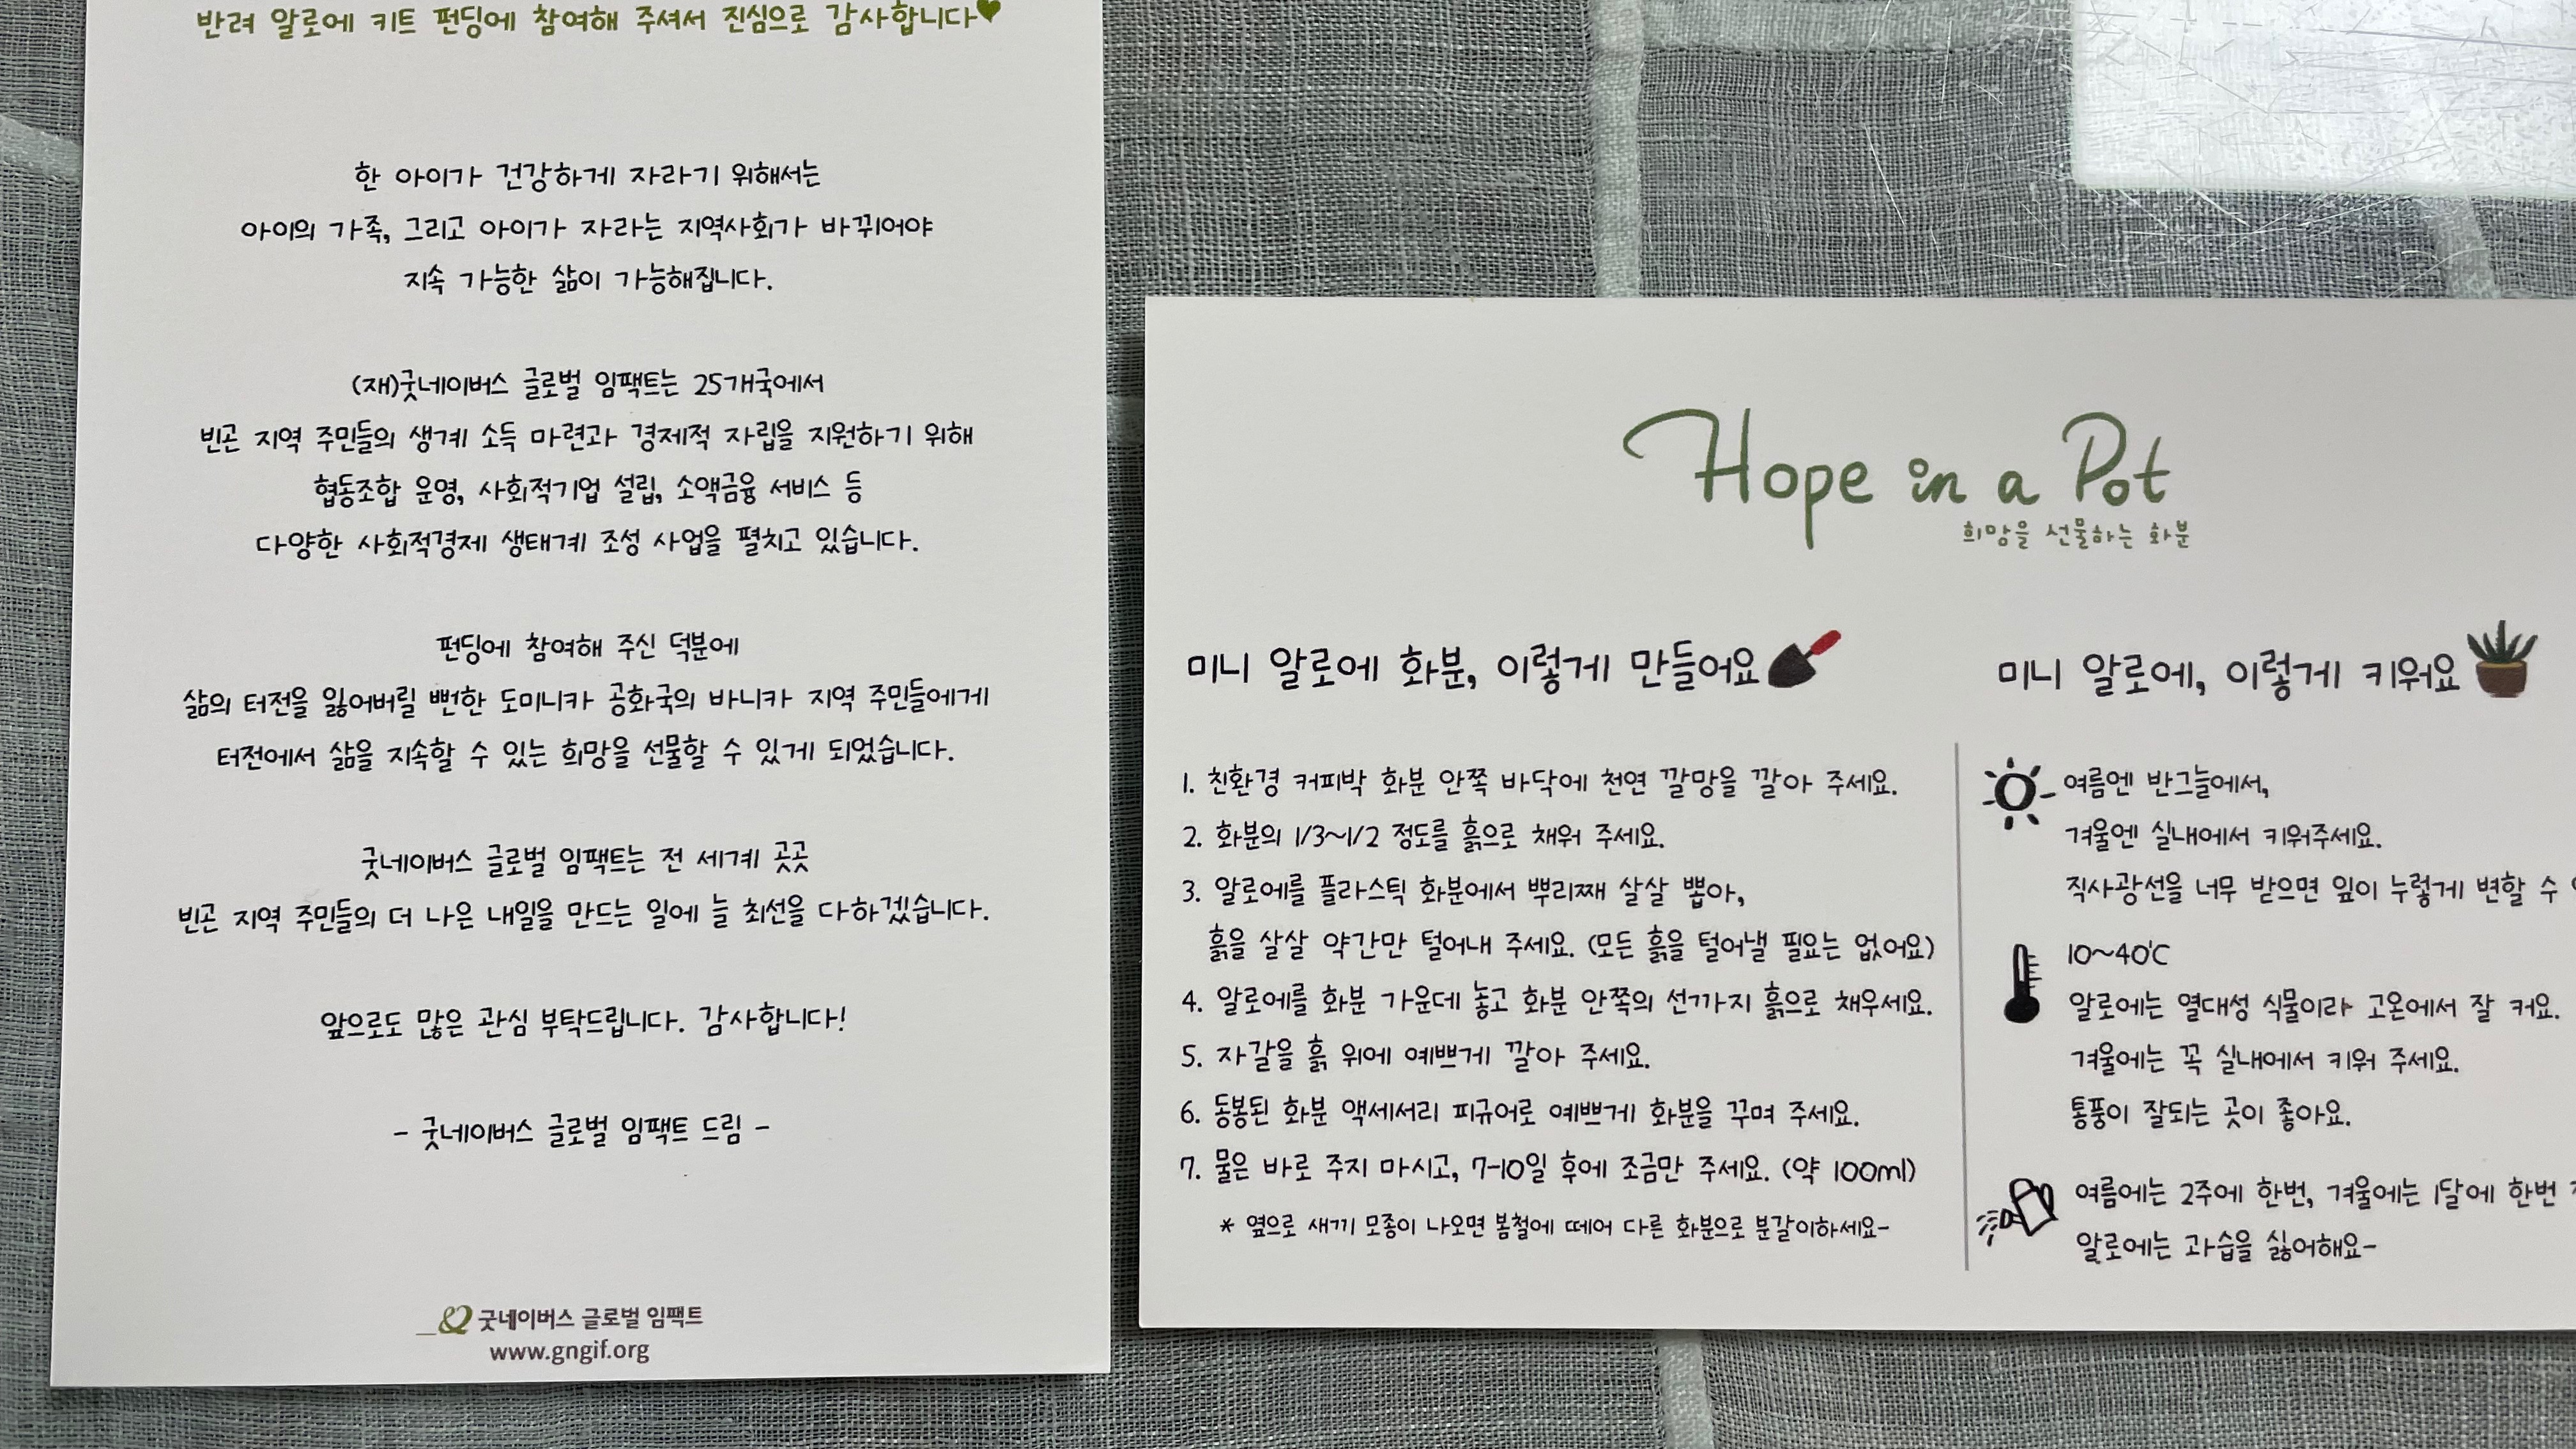 반려 알로에 키트 펀딩에 참여해 주셔서 진심으로 감사합니다♥
한 아이가 건강하게 자라기 위해서는
아이의 가족, 그리고 아이가 자라는 지역사회가 바뀌어야
지속 가능한 삶이 가능해집니다.
(재)굿네이버스 글로벌 임팩트는 25개국에서
빈곤 지역 주민들의 생계 소득 마련과 경제적 자립을 지원하기 위해
협동조합 운영, 사회적기업 설립, 소액금융 서비스 등
다양한 사회적경제 생태계 조성 사업을 펼치고 있습니다.
펀딩에 참여해 주신 덕분에
삶의 터전을 잃어버릴 뻔한 도미니카 공화국의 바니카 지역 주민들에게
터전에서 삶을 지속할 수 있는 희망을 선물할 수 있게 되었습니다.
굿네이버스 글로벌 임팩트는 전 세계 곳곳
빈곤 지역 주민들의 더 나은 내일을 만드는 일에 늘 최선을 다하겠습니다.
앞으로도 많은 관심 부탁드립니다. 감사합니다!
- 굿네이버스 글로벌 임팩트 드림 -
굿네이버스 글로벌 임팩트
www.gngif.org
Hope in a Pot
희망을 선물하는 화분
미니 알로에 화분, 이렇게 만들어요
1. 친환경 커피박 화분 안쪽 바닥에 천연 깔망을 깔아 주세요.
2. 화분의 1/3~1/2 정도를 흙으로 채워 주세요.
3. 알로에를 플라스틱 화분에서 뿌리째 살살 뽑아,
흙을 살살 약간만 털어내 주세요. (모든 흙을 털어낼 필요는 없어요)
4. 알로에를 화분 가운데 놓고 화분 안쪽의 선까지 흙으로 채우세요.
5. 자갈을 흙 위에 예쁘게 깔아 주세요.
6. 동봉된 화분 액세서리 피규어로 예쁘게 화분을 꾸며 주세요.
7. 물은 바로 주지 마시고, 7-10일 후에 조금만 주세요. (약 100ml)
* 옆으로 새끼 모종이 나오면 봄철에 떼어 다른 화분으로 분갈이하세요~
미니 알로에, 이렇게 키워요
여름엔 반그늘에서,
겨울엔 실내에서 키워주세요.
직사광선을 너무 받으면 잎이 누렇게 변할 수
10~40℃
알로에는 열대성 식물이라 고온에서 잘 커요.
겨울에는 꼭 실내에서 키워 주세요.
통풍이 잘되는 곳이 좋아요.
여름에는 2주에 한번, 겨울에는 1달에 한번
알로에는 과습을 싫어해요~